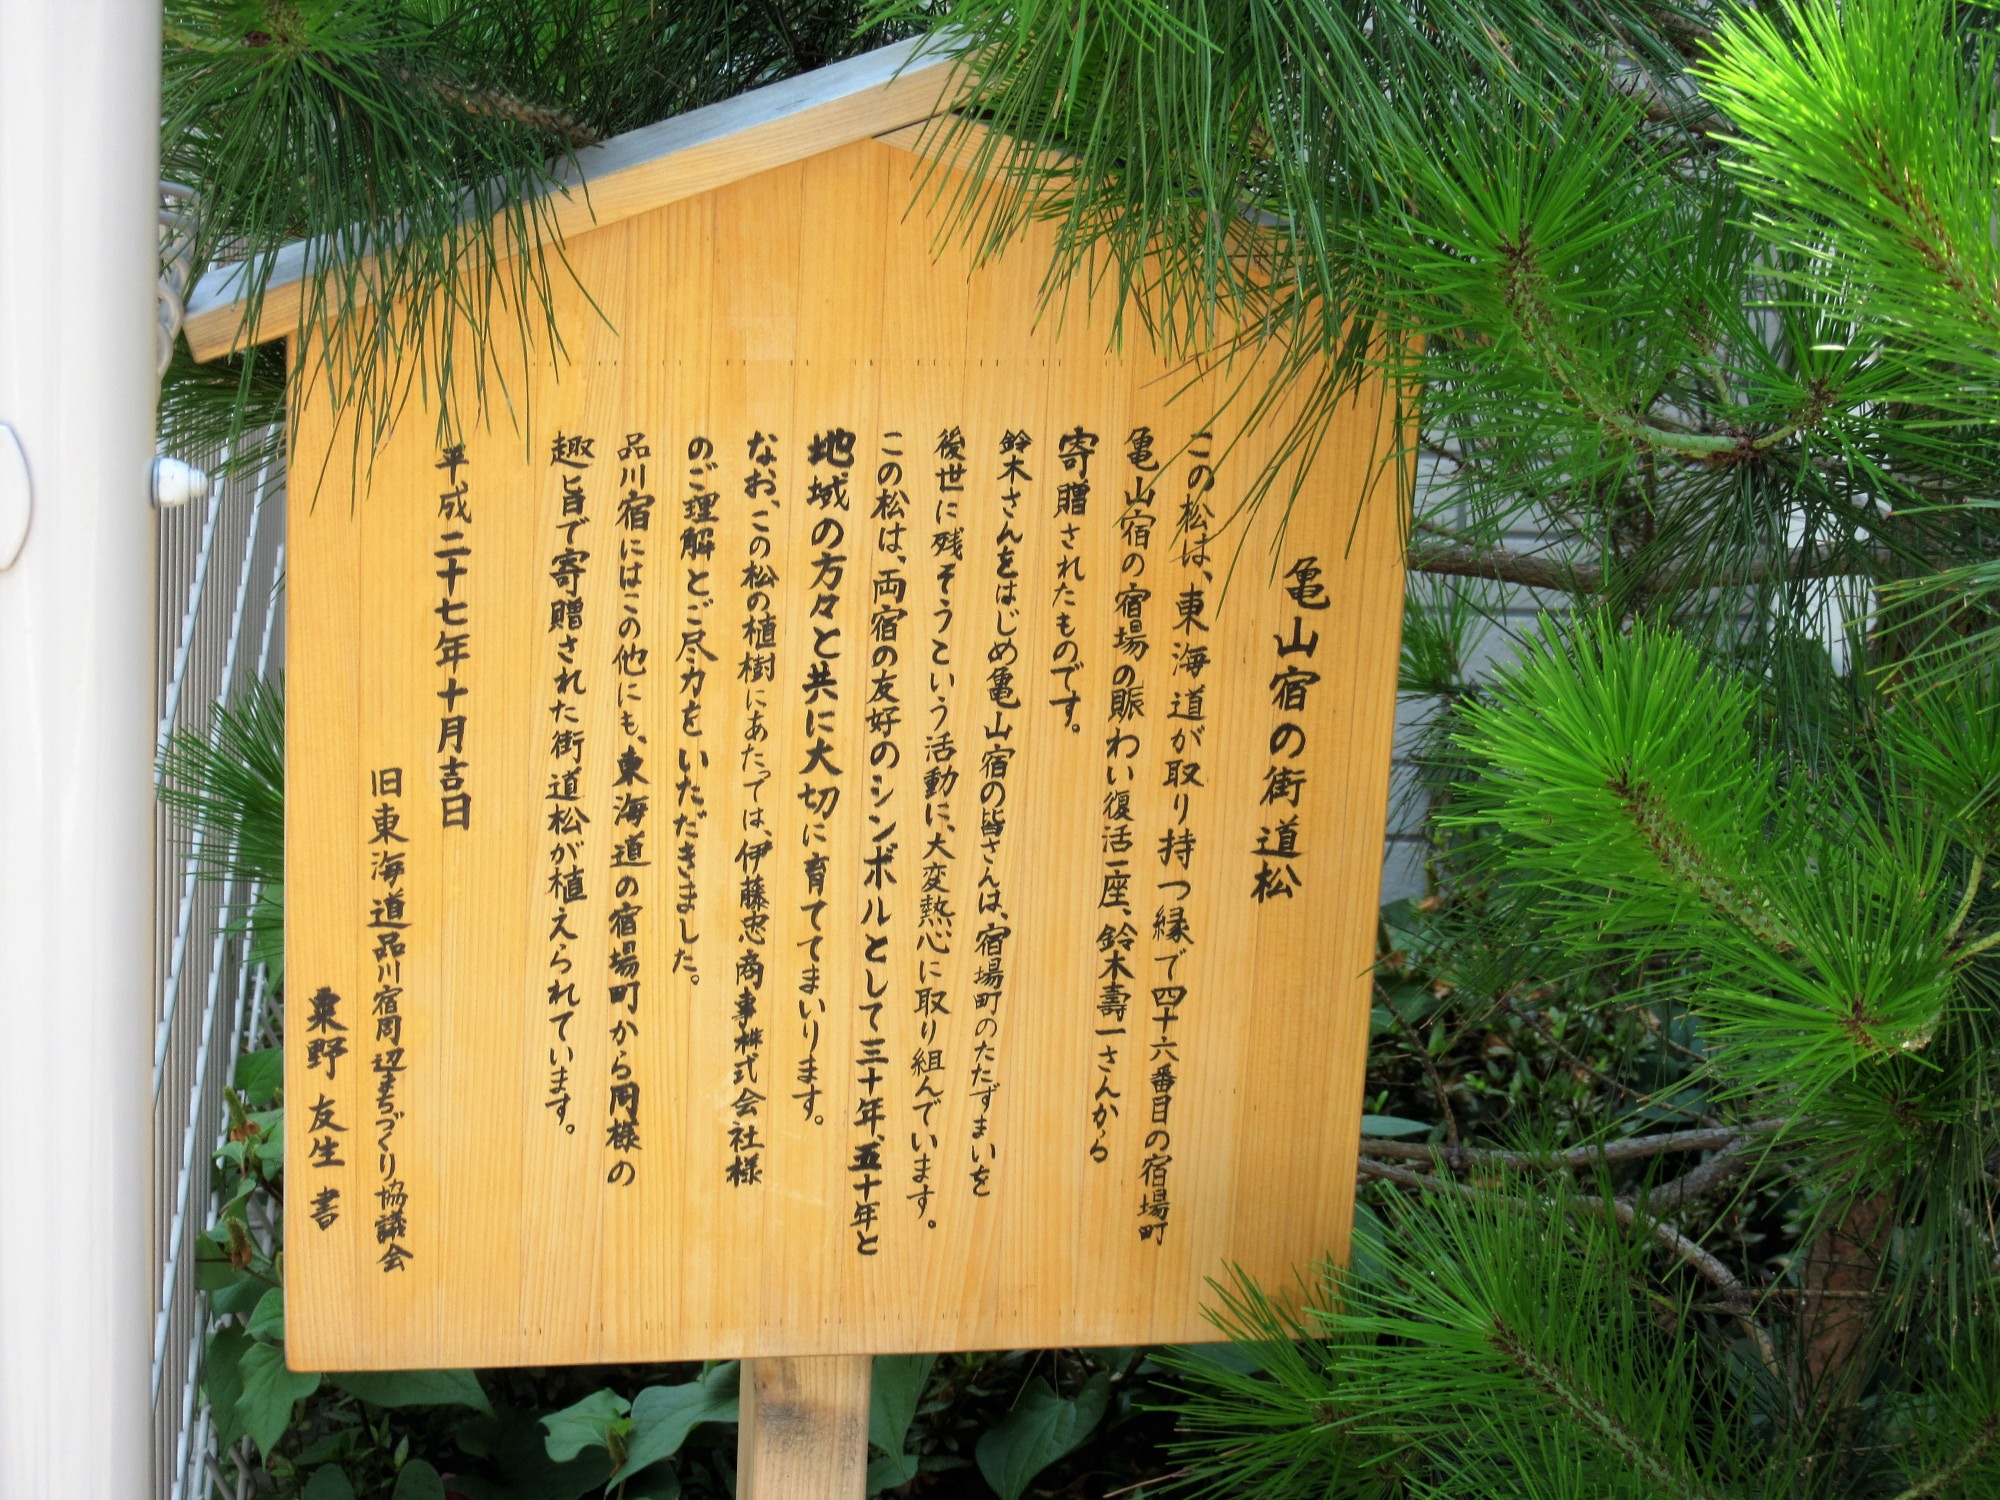 亀山宿の街道松
この松は、東海道が取り持つ縁で四十六番目の宿場町
亀山宿の宿場の賑わい復活一座、鈴木壽一さんから
寄贈されたものです。
鈴木さんをはじめ亀山宿の皆さんは、宿場町のたたずまいを
後世に残そうという活動に、大変熱心に取り組んでいます。
この松は、両宿の友好のシンボルとして三十年、五十年と
地域の方々と共に大切に育ててまいります。
なお、この松の植樹にあたっては、伊藤忠商事株式会社様
のご理解とご尽力をいただきました。
品川宿にはこの他にも、東海道の宿場町から同様の
趣旨で寄贈された街道松が植えられています。
平成二十七年十月吉日
旧東海道品川宿周辺まちづくり協議会
粟野友生書